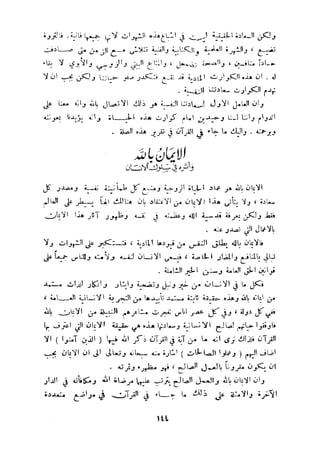 ولكن السعادة الحقيقية ليست في إشباع هذه الشهوات لأن جميعها فانية، فالثروة
، تضيع والشهرة والصحة والمكانة والقيمة تتلاشى مع من الزمن متى تصادفت
منافسين جدداً ، والصحة والجمال ، وإشباع البطن والزوج والأبوة لا بقاء
له . إن هذه الذكريات المادية قد تعد مصدر صفو حياتنا ولكن يجب أن لا
تهدم ذكريات سعادتنا النفسية .
إن العامل الأول لسعادتنا النفسية هو ذلك الاتصال بالله وأنه هنا معنا على
الدوام وأننا وحدنا أمام كوارث هذه الحياة وأنه يؤيدنا بمعونته
وبرحمته . وإليك ما جاء في القرآن في هذه الصلة .
الإيمان بالله
وأثره في سلوك الإنسان
إن الإيمان بالله هو عماد الحياة الروحية ومنبع كل طمأنينة نفسية ومصدر كل
سعادة ، ولا يتأتى هذا الإيمان من الاعتقاد بأن هناك إلهاً يسيطر على العالم
فقط ولكن بمعرفة قدسية الله وعظمته في نفسه وظهور آثار هذا الإيمان
بالأعمال التي تصدر عنه .
فالإيمان بالله يطلق النفس من قيودها المادية ، فتستنكر على الشهوات ولا
تبالي بالمنافع والمضار الخاصة ، فيسمى الإنسان لنفسه ولأمته وللناس جميعاً على
قوانين الحق العامة وسنن الخير الشاملة .
فكل ما في الإنسان من خير ونبل وتضحية وإيثار وإنما ذلك مستمد من
إيمانه بالله وهذه حقيقة ثابتة مستمدة تأييدها من التجربة الإنسانية العاملة ،
فكم دول وفي كل عصر أناس تفجرت مشاعرهم الفطنة من الإيمان بالله
فأوقفوا حياتهم لصالح الإنسانية وسعادتها هذه هي حقيقة الإيمان التي يعترف بها
القرآن فلذلك نرى أنه ما من آية في القرآن ذكر الله فيها ( الذين آمنوا ) إلا
أضاف إليهم ( وعملوا الصالحات ) إشارة منه سبحانه وتعالى إلى أن الإيمان يجب
أن يكون مقروناً بالعمل الصالح ، فهو مظهره وثمرته .
إن الإيمان بالله والعمل الصالح يترتب عليهما مرضاة الله ومكافأته في الدار
الآخرة والأمثلة على ذلك ما جاء في القرآن في مواضع متعددة
١٤٤